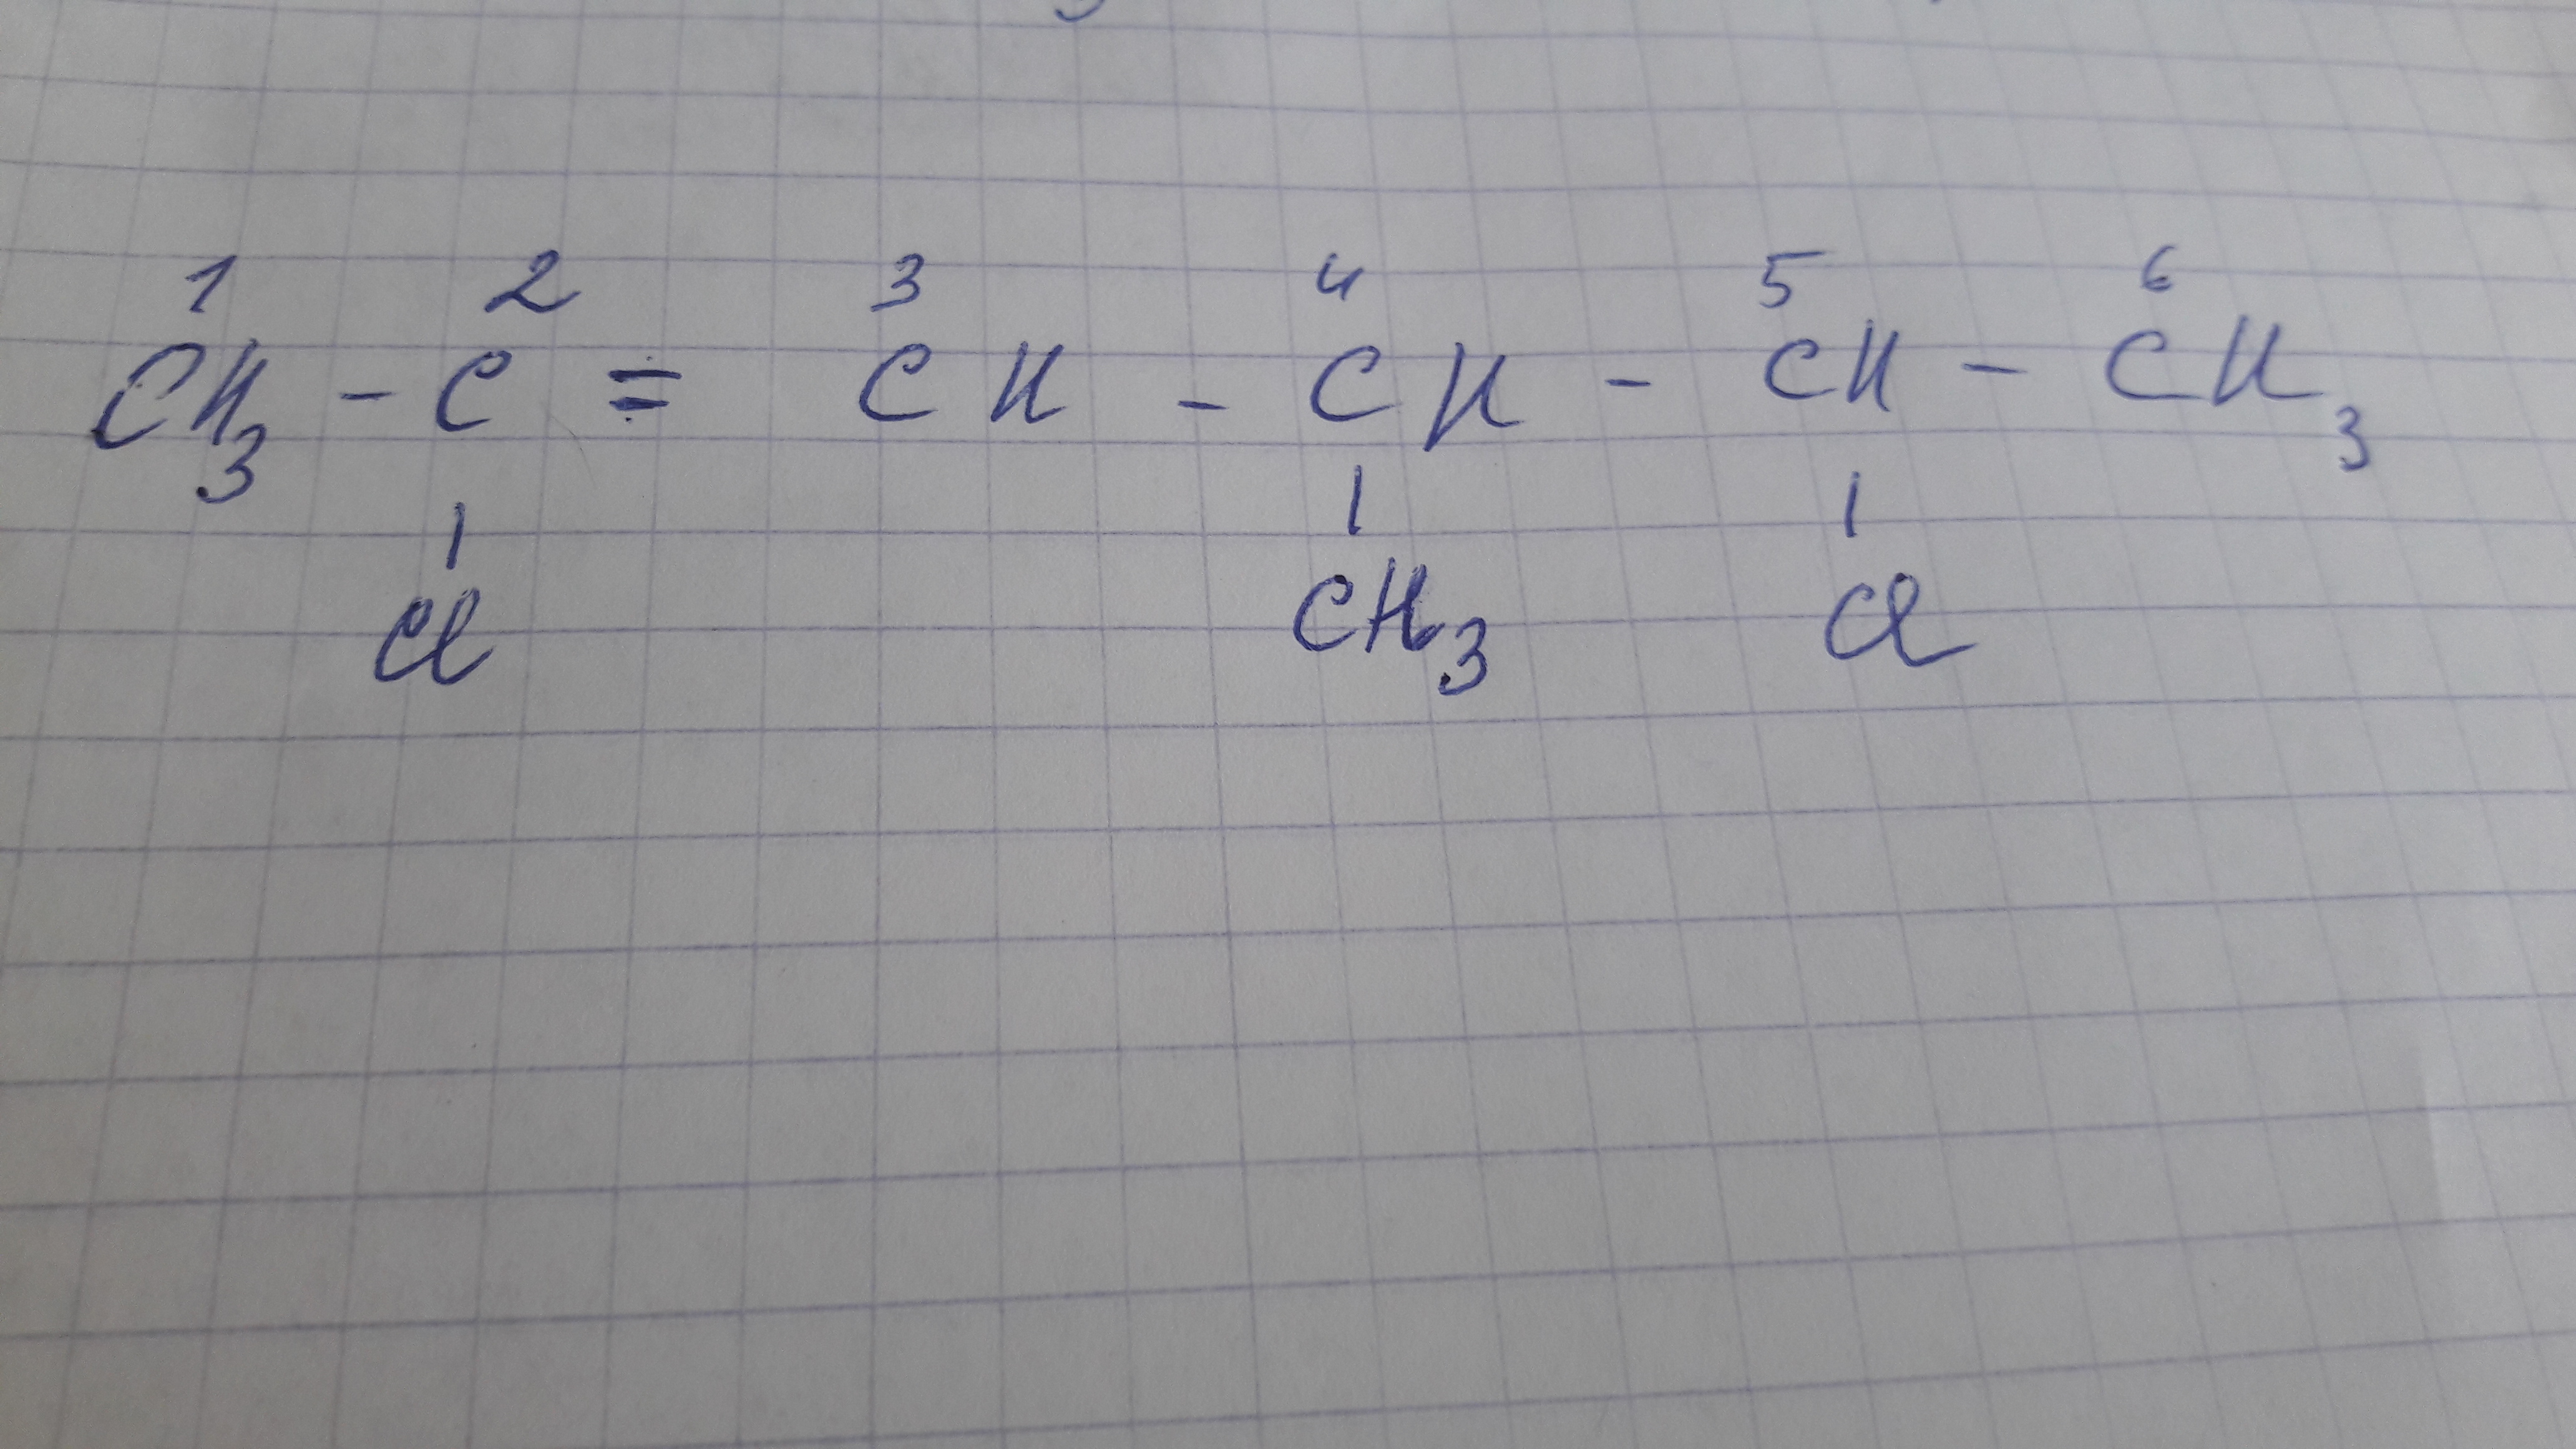 1 2 3 4 5 6
CH3 - C = CH - CH - CH - CH3
| | |
Cl CH3 Cl